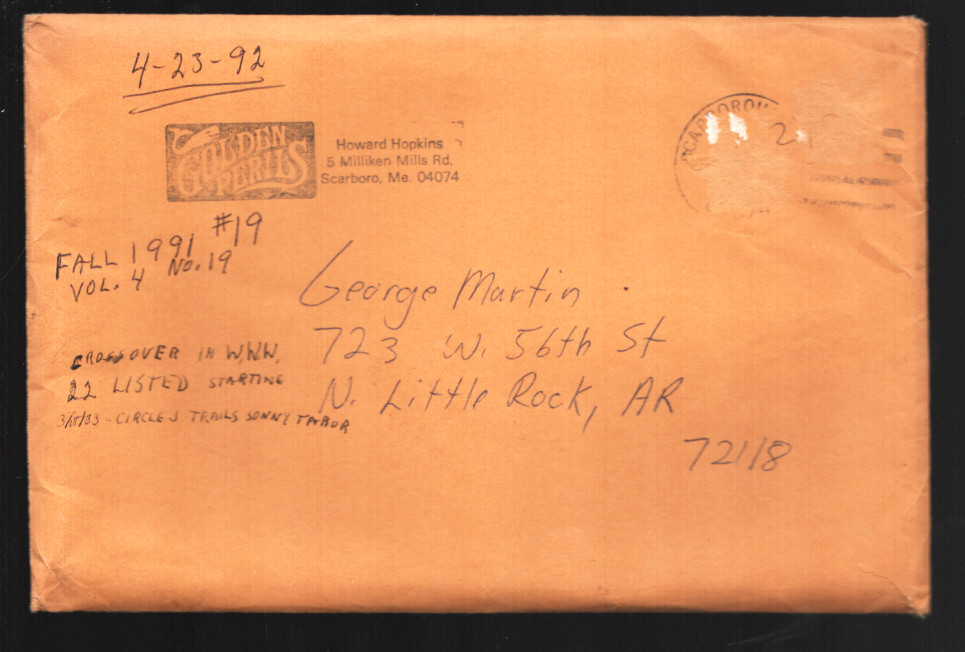 4-23-92
GOLDEN
PERILS
Howard Hopkins
5 Milliken Mills Rd.
Scarboro, Me. 04074
2
FALL 1991 #19
VOL. 4 NO. 19
George Martin
723 W. 56th St
N. Little Rock, AR
72118
CROSSOVER IN W.W.W.
22 LISTED STARTING
3/18/33 - CIRCLE J TRAILS SONNY TABOR